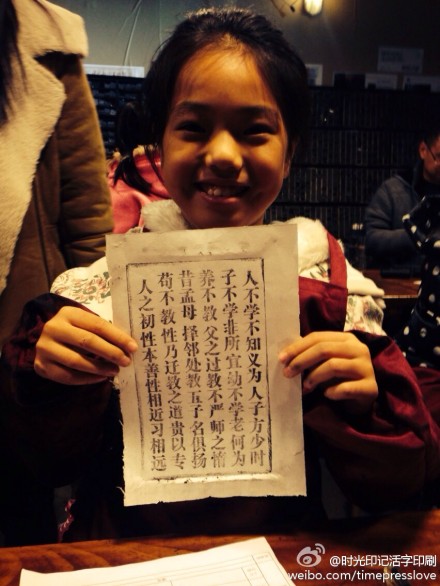 人之初性本善性相近习相远
苟不教性乃迁教之道贵以专
昔孟母择邻处教五子名俱扬
养不教父之过教不严师之惰
子不学非所宜幼不学老何为
人不学不知义为人子方少时
@时光印记活字印刷
weibo.com/timepresslove